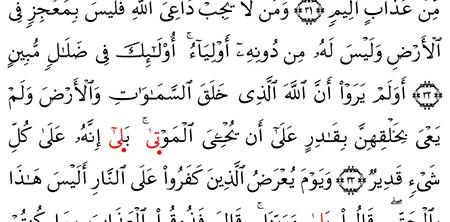 مِّنْ عَذَابٍ أَلِيمٍ ﴿٣١﴾ وَمَن لَّا يُجِبْ دَاعِىَ ٱللَّهِ فَلَيْسَ بِمُعْجِزٍ فِى
ٱلْأَرْضِ وَلَيْسَ لَهُۥ مِن دُونِهِۦٓ أَوْلِيَآءُ ۚ أُو۟لَٰٓئِكَ فِى ضَلَٰلٍ مُّبِينٍ
﴿٣٢﴾ أَوَلَمْ يَرَوْا۟ أَنَّ ٱللَّهَ ٱلَّذِى خَلَقَ ٱلسَّمَٰوَٰتِ وَٱلْأَرْضَ وَلَمْ
يَعْىَ بِخَلْقِهِنَّ بِقَٰدِرٍ عَلَىٰٓ أَن يُحْۦِىَ ٱلْمَوْتَىٰ ۚ بَلَىٰٓ إِنَّهُۥ عَلَىٰ كُلِّ
شَىْءٍ قَدِيرٌ ﴿٣٣﴾ وَيَوْمَ يُعْرَضُ ٱلَّذِينَ كَفَرُوا۟ عَلَى ٱلنَّارِ أَلَيْسَ هَٰذَا
بِٱلْحَقِّ ۖ قَالُوا۟ بَلَىٰ وَرَبِّنَا ۚ قَالَ فَذُوقُوا۟ ٱلْعَذَابَ بِمَا كُنتُمْ